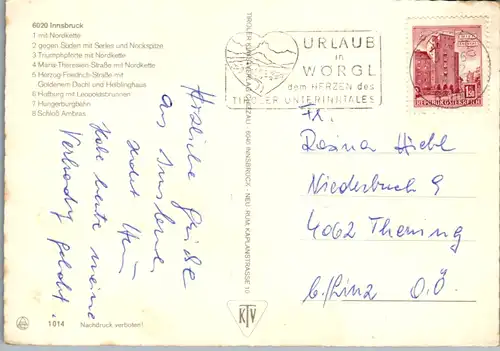 6020 Innsbruck
1 mit Nordkette
2 gegen Süden mit Serles und Nockspitze
3 Triumphpforte mit Nordkette
4 Maria-Theresien-Straße mit Nordkette
5 Herzog-Friedrich-Straße mit
Goldenem Dachl und Helblinghaus
6 Hofburg mit Leopoldsbrunnen
7 Hungerburgbahn
8 Schloß Ambras
Herzliche Grüße
aus Innsbruck
Habe heute meine
gehabt.
1014
Nachdruck verboten!
TIROLER KUNSTVERLAG CHIZZALI · 6040 INNSBRUCK - NEU-RUM, KAPLANSTRASSE 10
KTV
URLAUB
in
WÖRGL
dem HERZEN des
TIROLER UNTERINNTALES
REPUBLIK ÖSTERREICH
Fr.
Rosina Hiebl
Niederbuch 9
4062 Thening
b./Linz O.Ö.